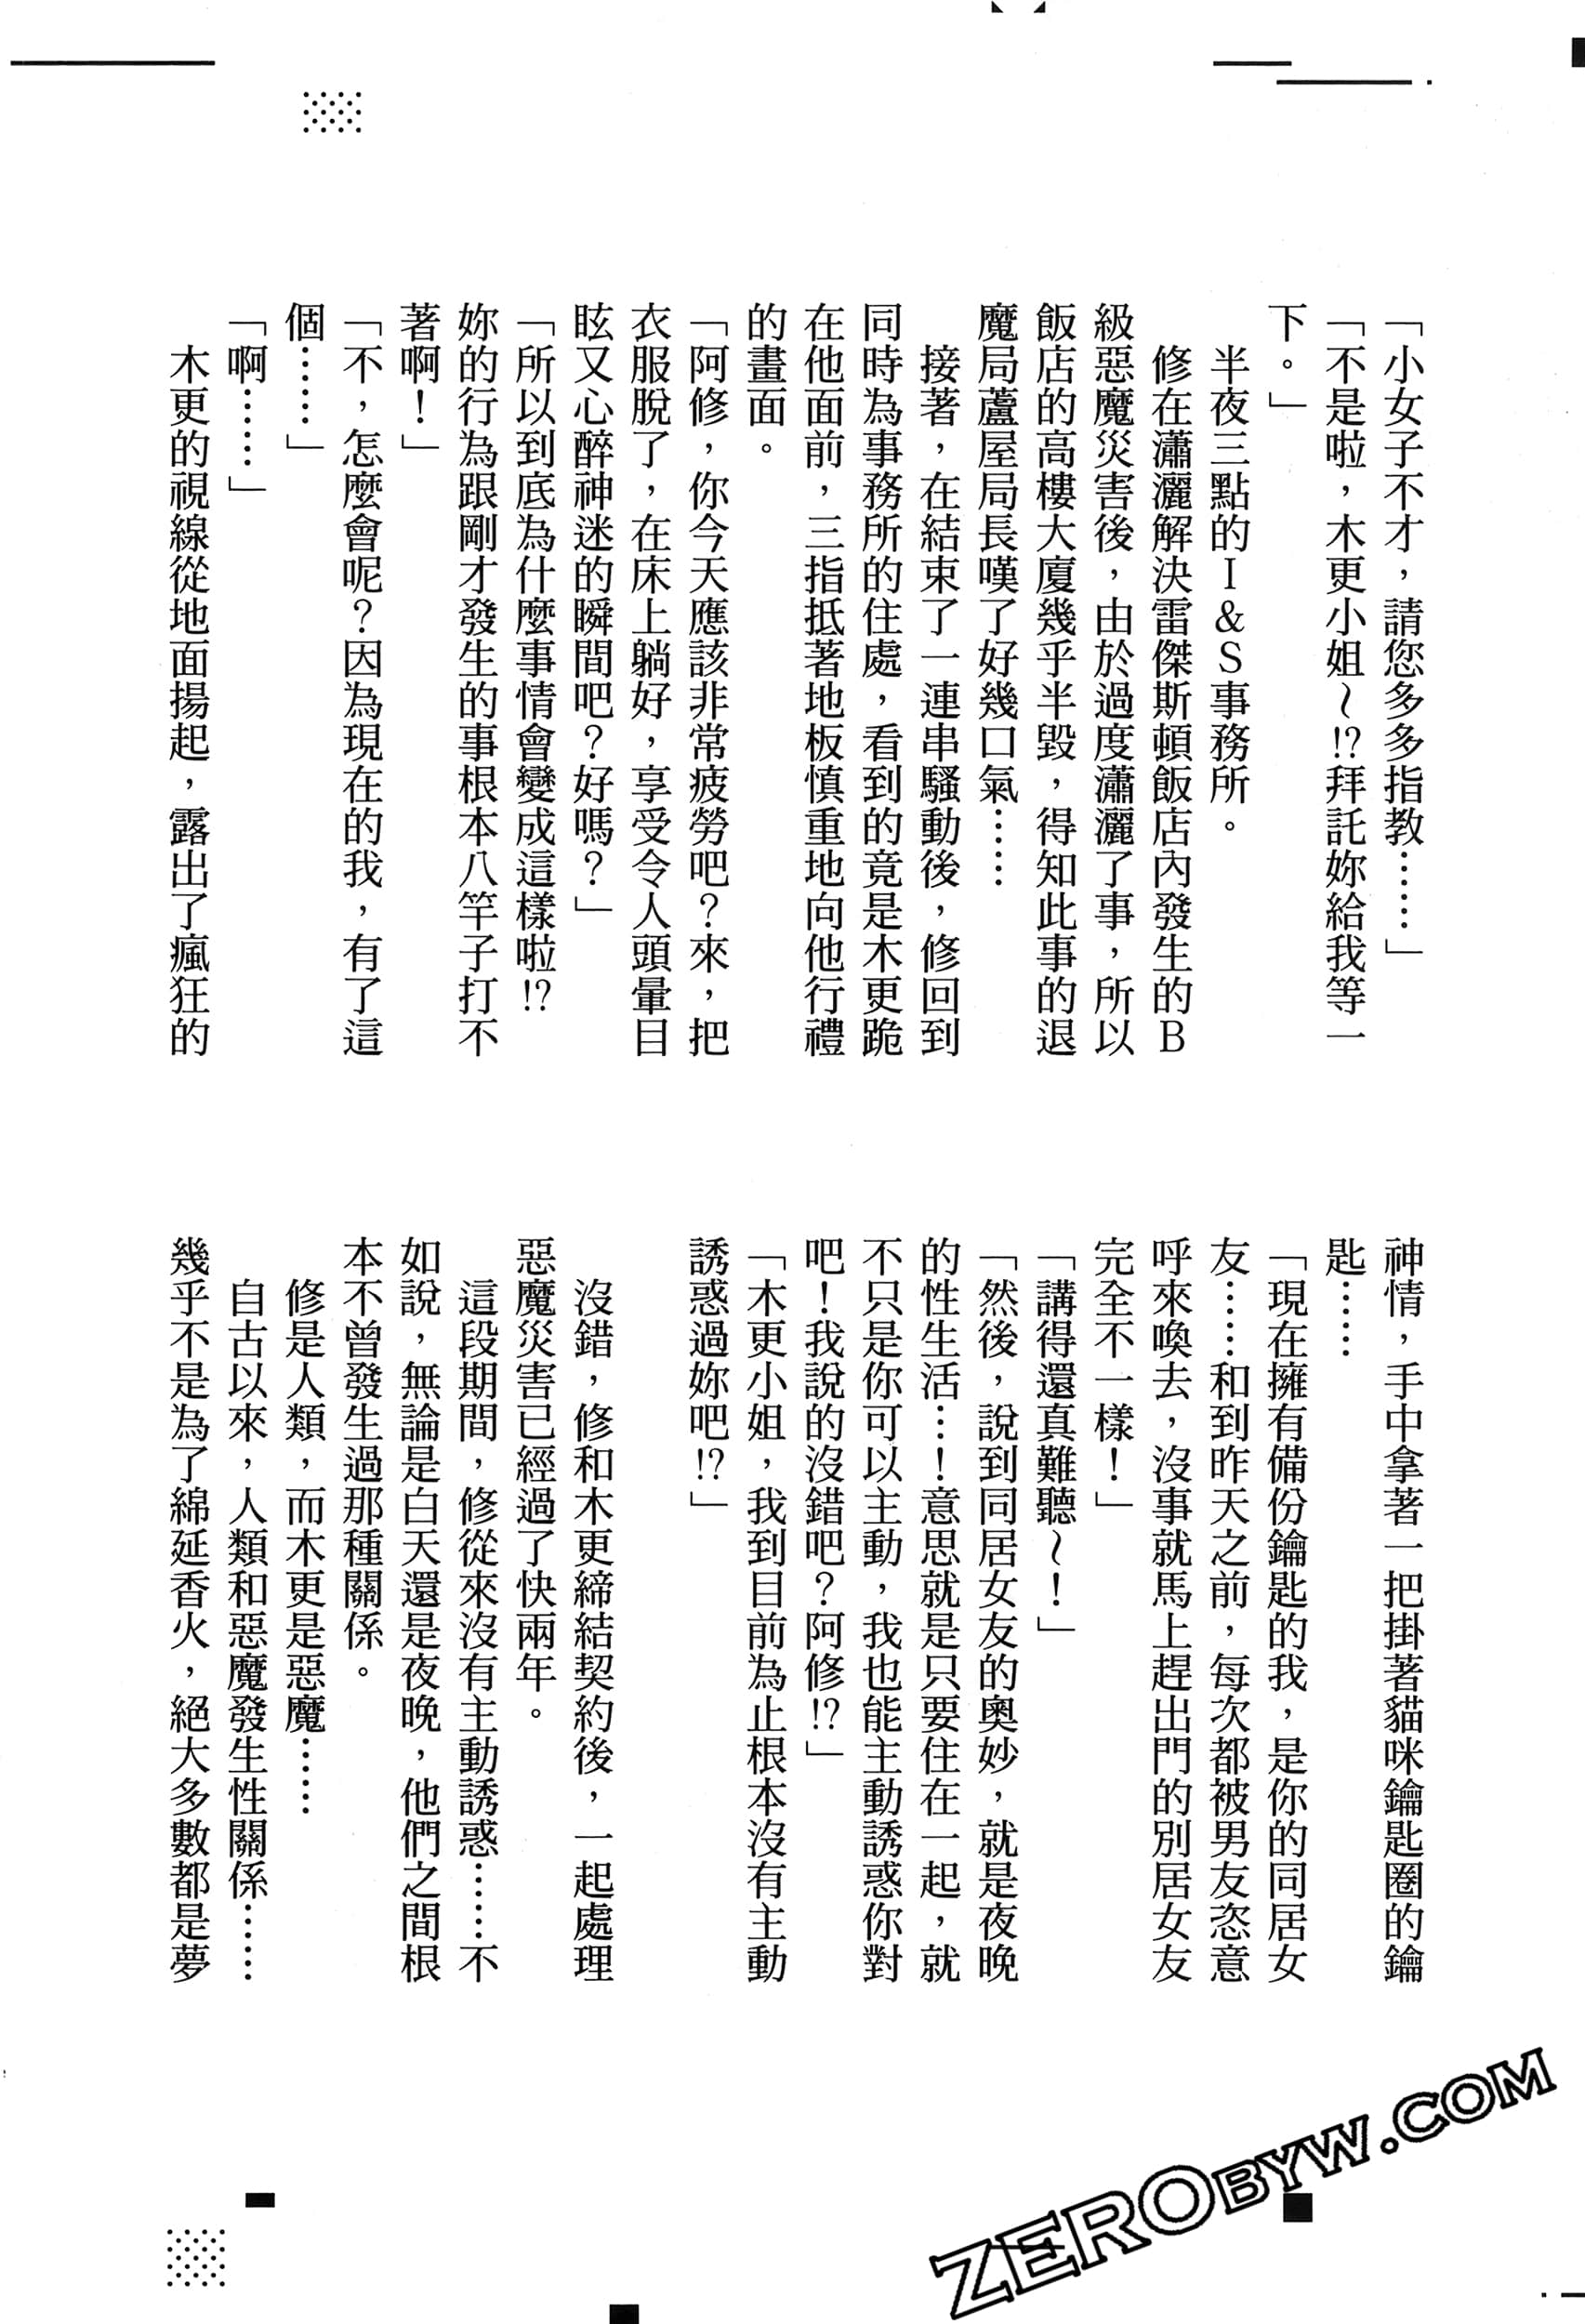 「小女子不才，請您多多指教……」
「不是啦，木更小姐～!?拜託妳給我等一
下。」
半夜三點的I＆S事務所。
修在瀟灑解決雷傑斯頓飯店內發生的B
級惡魔災害後，由於過度瀟灑了事，所以
飯店的高樓大廈幾乎半毀，得知此事的退
魔局蘆屋局長嘆了好幾口氣……
接著，在結束了一連串騷動後，修回到
同時為事務所的住處，看到的竟是木更跪
在他面前，三指抵著地板慎重地向他行禮
的畫面。
「阿修，你今天應該非常疲勞吧？來，把
衣服脫了，在床上躺好，享受令人頭暈目
眩又心醉神迷的瞬間吧？好嗎？」
「所以到底為什麼事情會變成這樣啦!?
妳的行為跟剛才發生的事根本八竿子打不
著啊！」
「不，怎麼會呢？因為現在的我，有了這
個……」
「啊……」
木更的視線從地面揚起，露出了瘋狂的
神情，手中拿著一把掛著貓咪鑰匙圈的鑰
匙……
「現在擁有備份鑰匙的我，是你的同居女
友……和到昨天之前，每次都被男友恣意
呼來喚去，沒事就馬上趕出門的別居女友
完全不一樣！」
「講得還真難聽～！」
「然後，說到同居女友的奧妙，就是夜晚
的性生活…！意思就是只要住在一起，就
不只是你可以主動，我也能主動誘惑你對
吧！我說的沒錯吧？阿修!?」
「木更小姐，我到目前為止根本沒有主動
誘惑過妳吧!?」
沒錯，修和木更締結契約後，一起處理
惡魔災害已經過了快兩年。
這段期間，修從來沒有主動誘惑……不
如說，無論是白天還是夜晚，他們之間根
本不曾發生過那種關係。
修是人類，而木更是惡魔……
自古以來，人類和惡魔發生性關係……
幾乎不是為了綿延香火，絕大多數都是夢
ZEROBYW.COM